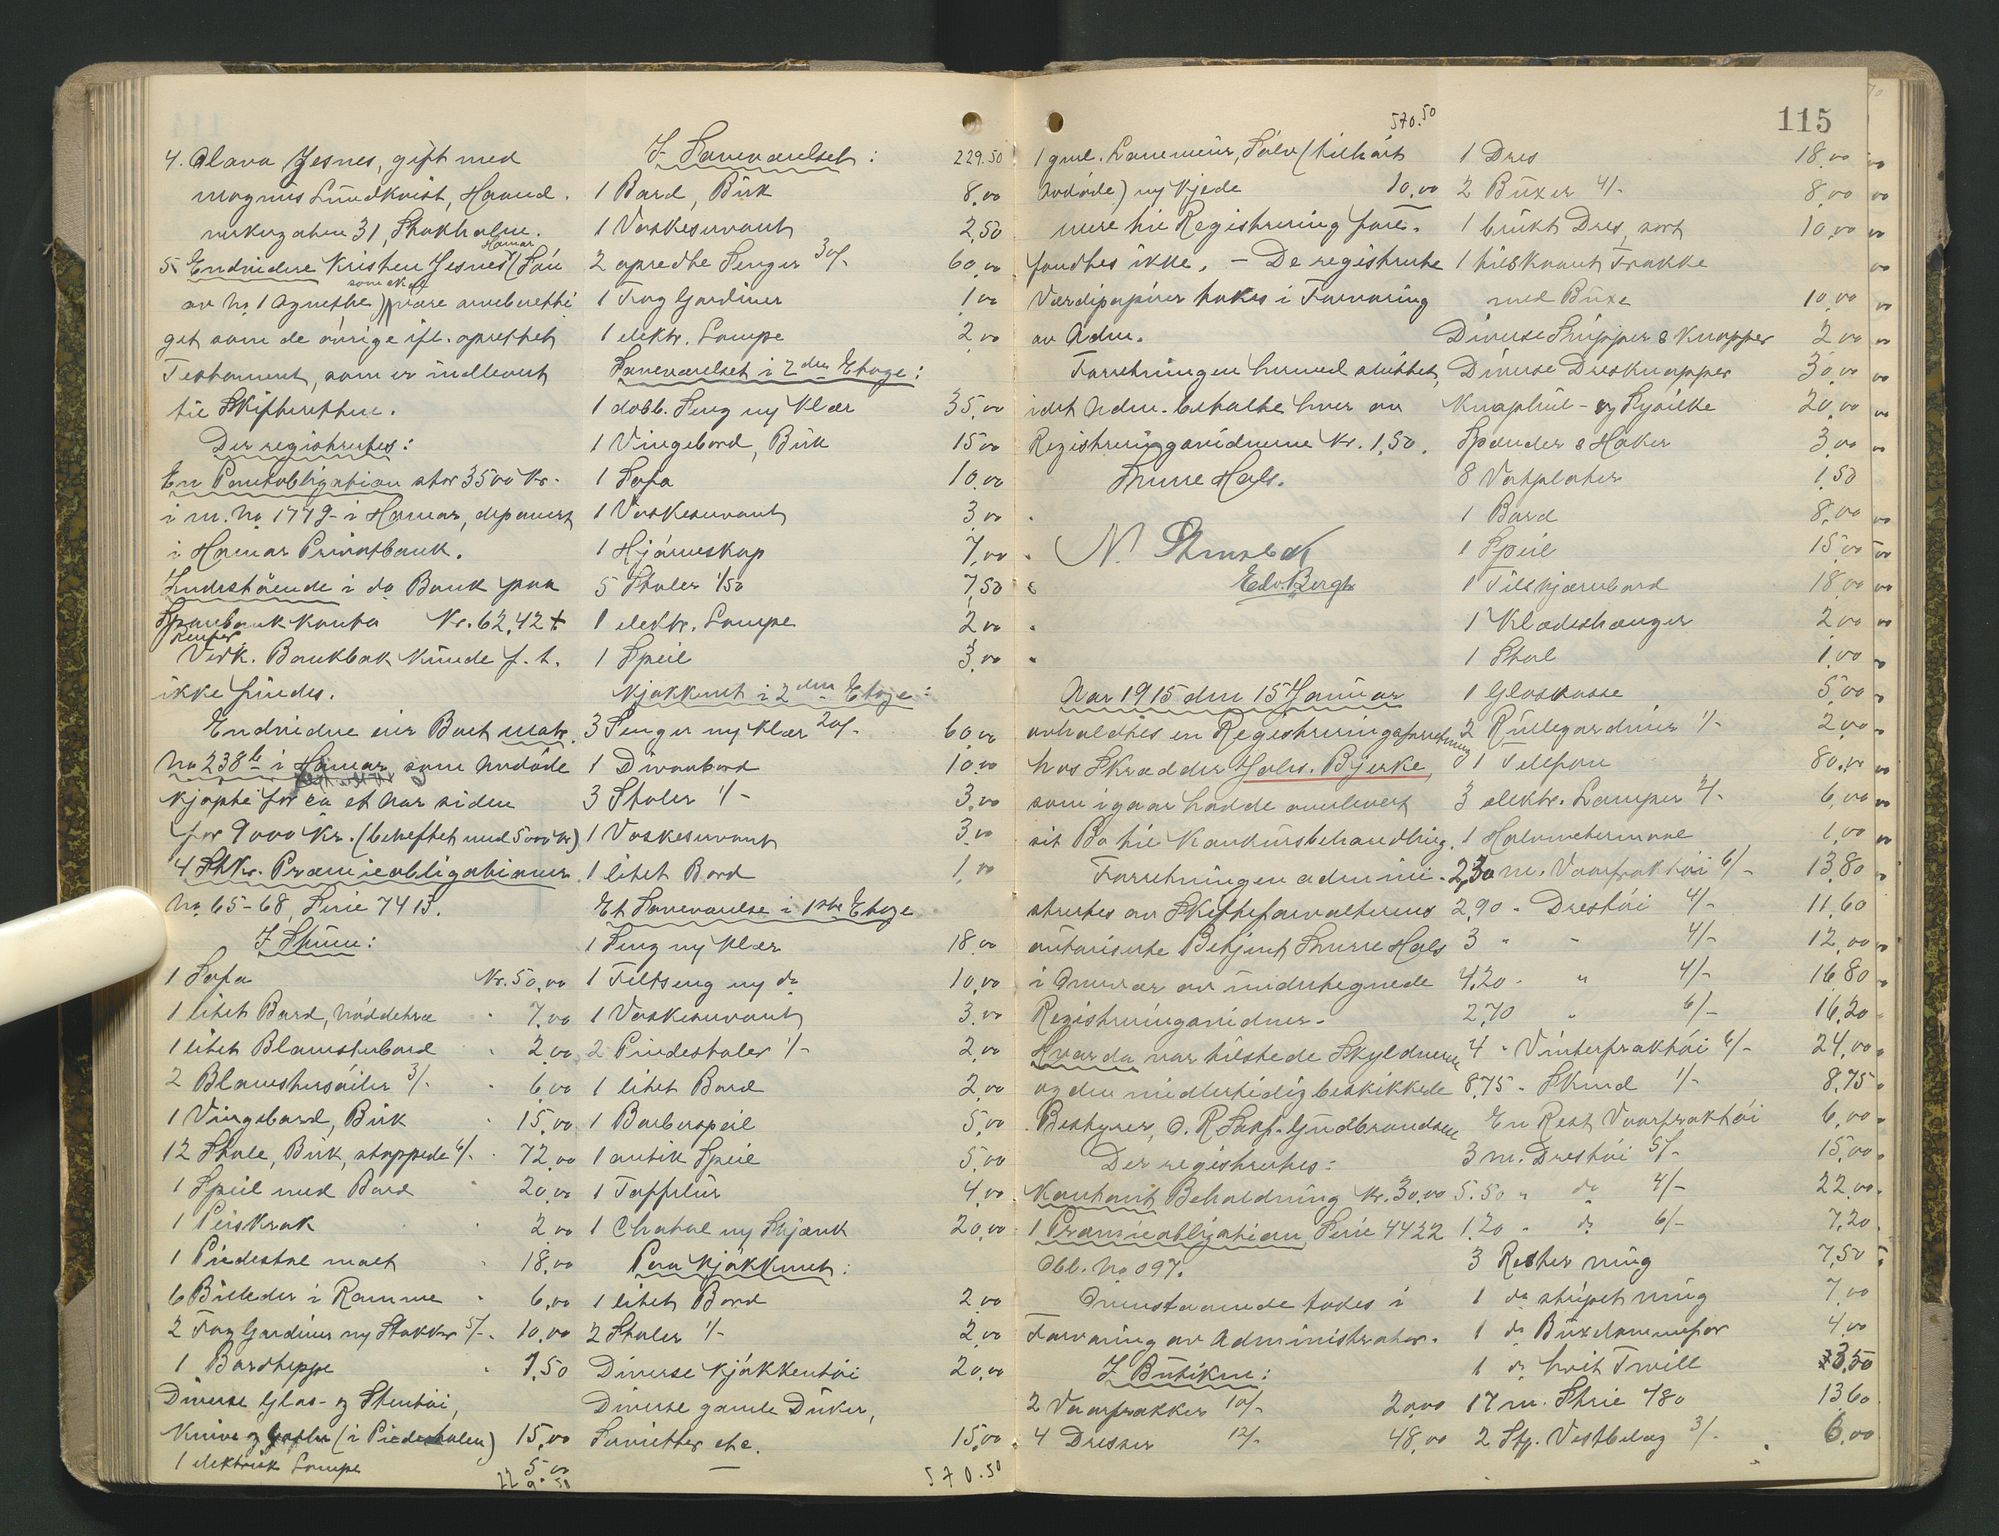 4. Olava Jesnes, gift med
Magnus Lundkvist, Haand.
verkergaten 31, Stokholm.
Hamar
5. Endvidere Kristen Jesnes (Søn
som skal
av No 1 Agnethe) være arveberetti
get som de øvrige ifl. oprettet
Testament, som er indlevert
til Skifteretten.
Der registrertes:
En Pantobligation stor 3500 Kr.
i m. No 177 i Hamar, deponert
i Hamar Privatbank.
Indestaaende i do Bank paa
Sparebankkonto Kr. 62,42 +
renter
Vedk. Bankbok kunde f. t.
ikke findes.
Endvidere eier Boet matr.
No 238b i Hamar som Avdøde
kjøpte for ca et Aar siden
for 9000 kr. (beheftet med 5000 kr)
4 Stkr. Præmieobligationer
No 65-68, Serie 7413.
I Stuen:
1 Sofa Kr. 50,00
1 litet Bord, Nøddetræ " 7,00
1 litet Blomsterbord " 2,00
2 Blomstersøiler 3/- " 6,00
1 Vingebord, Birk " 15,00
12 Stole, Birk, stoppede 6/- " 72,00
1 Speil med Bord " 20,00
1 Peiskrak " 2,00
1 Piedestal malt " 18,00
6 Billeder i Ramme " 6,00
2 Fag Gardiner og Stokker 5/- " 10,00
1 Bordteppe " 1,50
Diverse Glas- og Stentøi,
Knive og Gafler (i Piedestalen) 15,00
1 elektrisk Lampe 5,00
229.50
I Soveværelset: 229.50
1 Bord, Birk 8,00
1 Vaskeservant 2,50
2 opredte Senger 30/- 60,00
1 Fag Gardiner 1,00
1 elektr. Lampe 2,00
Soveværelset i 2den Etage:
1 dobb. Seng og Klær 35,00
1 Vingebord, Birk 15,00
1 Sofa 10,00
1 Vaskeservant 3,00
1 Hjørneskap 7,00
5 Stoler 1/50 7,50
1 elektr. Lampe 2,00
1 Speil 3,00
Kjøkkenet i 2den Etage:
3 Senger og Klær 20/- 60,00
1 Divanbord 10,00
3 Stoler 1/- 3,00
1 Vaskeservant 3,00
1 litet Bord 1,00
Et Soveværelse i 1ste Etage
1 Seng og Klær 18,00
1 Feltseng og do 10,00
1 Vaskeservant 3,00
2 Pindestoler 1/- 2,00
1 litet Bord 2,00
1 Barberspeil 5,00
1 antik Speil 5,00
1 Taffelur 4,00
1 Chatol og Skjænk 20,00
Paa Kjøkkenet:
1 litet Bord 2,00
2 Stoler 1/- 2,00
Diverse Kjøkkentøi 20,00
Diverse gamle Duker,
Servietter etc. 15,00
—
570.50
570.50
1 gml. Lommeur, Sølv (tilhørt
Avdøde) og Kjede 10,00
mere til Registrering fore-
fandtes ikke. - De registrerte
Værdipapirer tokes i Forvaring
av Adm.
Forretningen hermed sluttet,
idet Adm. betalte hver av
Registreringsvidnerne Kr. 1,50.
Sverre Hals.
N. Stensbak
Edv. Bergh
Aar 1915 den 15 Januar
avholdtes en Registreringsforretning
hos Skrædder Johs. Bjerke,
som igaar hadde overlevert
sit Bo til Konkursbehandling.
Forretningen admini-
strertes av Skifteforvalterens
autoriserte Betjent Sverre Hals
i Overvær av undertegnede
Registreringsvidner.
Hvorda var tilstede Skyldneren
og den midlertidig beskikkede
Bestyrer, O. R. Sakf. Gudbrandsen
Der registrertes:
Kontant Beholdning Kr. 30,00
1 Præmieobligation, Serie 4422
Obl. No 097.
Ovenstaaende todes i
Forvaring av Administrator.
I Butiken:
2 Vaarfrakker 10/- 20,00
4 Dresser 12/- 48,00
115
1 Dres 18,00
2 Buxer 4/- 8,00
1 brukt Dres, sort 10,00
1 tilskaaret Frakke
med Buxe 10,00
Diverse Knapper 2,00
Diverse Dresknapper 30,00
Knaphul- og Sysilke 20,00
Spænder & Hæker 3,00
8 Vatplater 1,50
1 Bord 8,00
1 Speil 15,00
1 Tilskjærerbord 18,00
1 Klædeshænger 2,00
1 Stol 1,00
1 Glaskasse 5,00
2 Rullegardiner 1/- 2,00
1 Telefon 80,00
3 elektr. Lamper 2/- 6,00
1 Halvmetermaal 1,00
2,30 m. Vaarfraktøi 6/- 13,80
2,90 " Drestøi 4/- 11,60
3 " " 4/- 12,00
4,20 " " 4/- 16,80
2,70 " 6/- 16,20
4 " Vinterfraktøi 6/- 24,00
8,75 " Skind 1/- 8,75
En Rest Vaarfraktøi 6,00
3 m. Drestøi 5/- 15,00
5.50 " do 4/- 22,00
1,20 " do 6/- 7,20
3 Rester ring 7,50
1 do stripet ring 7,00
1 do Buxelommefor 4,00
1 do hvit Twill 3,50
17 m. Strie /80 13,60
2 Stk. Vestbelæg 3/- 6,00